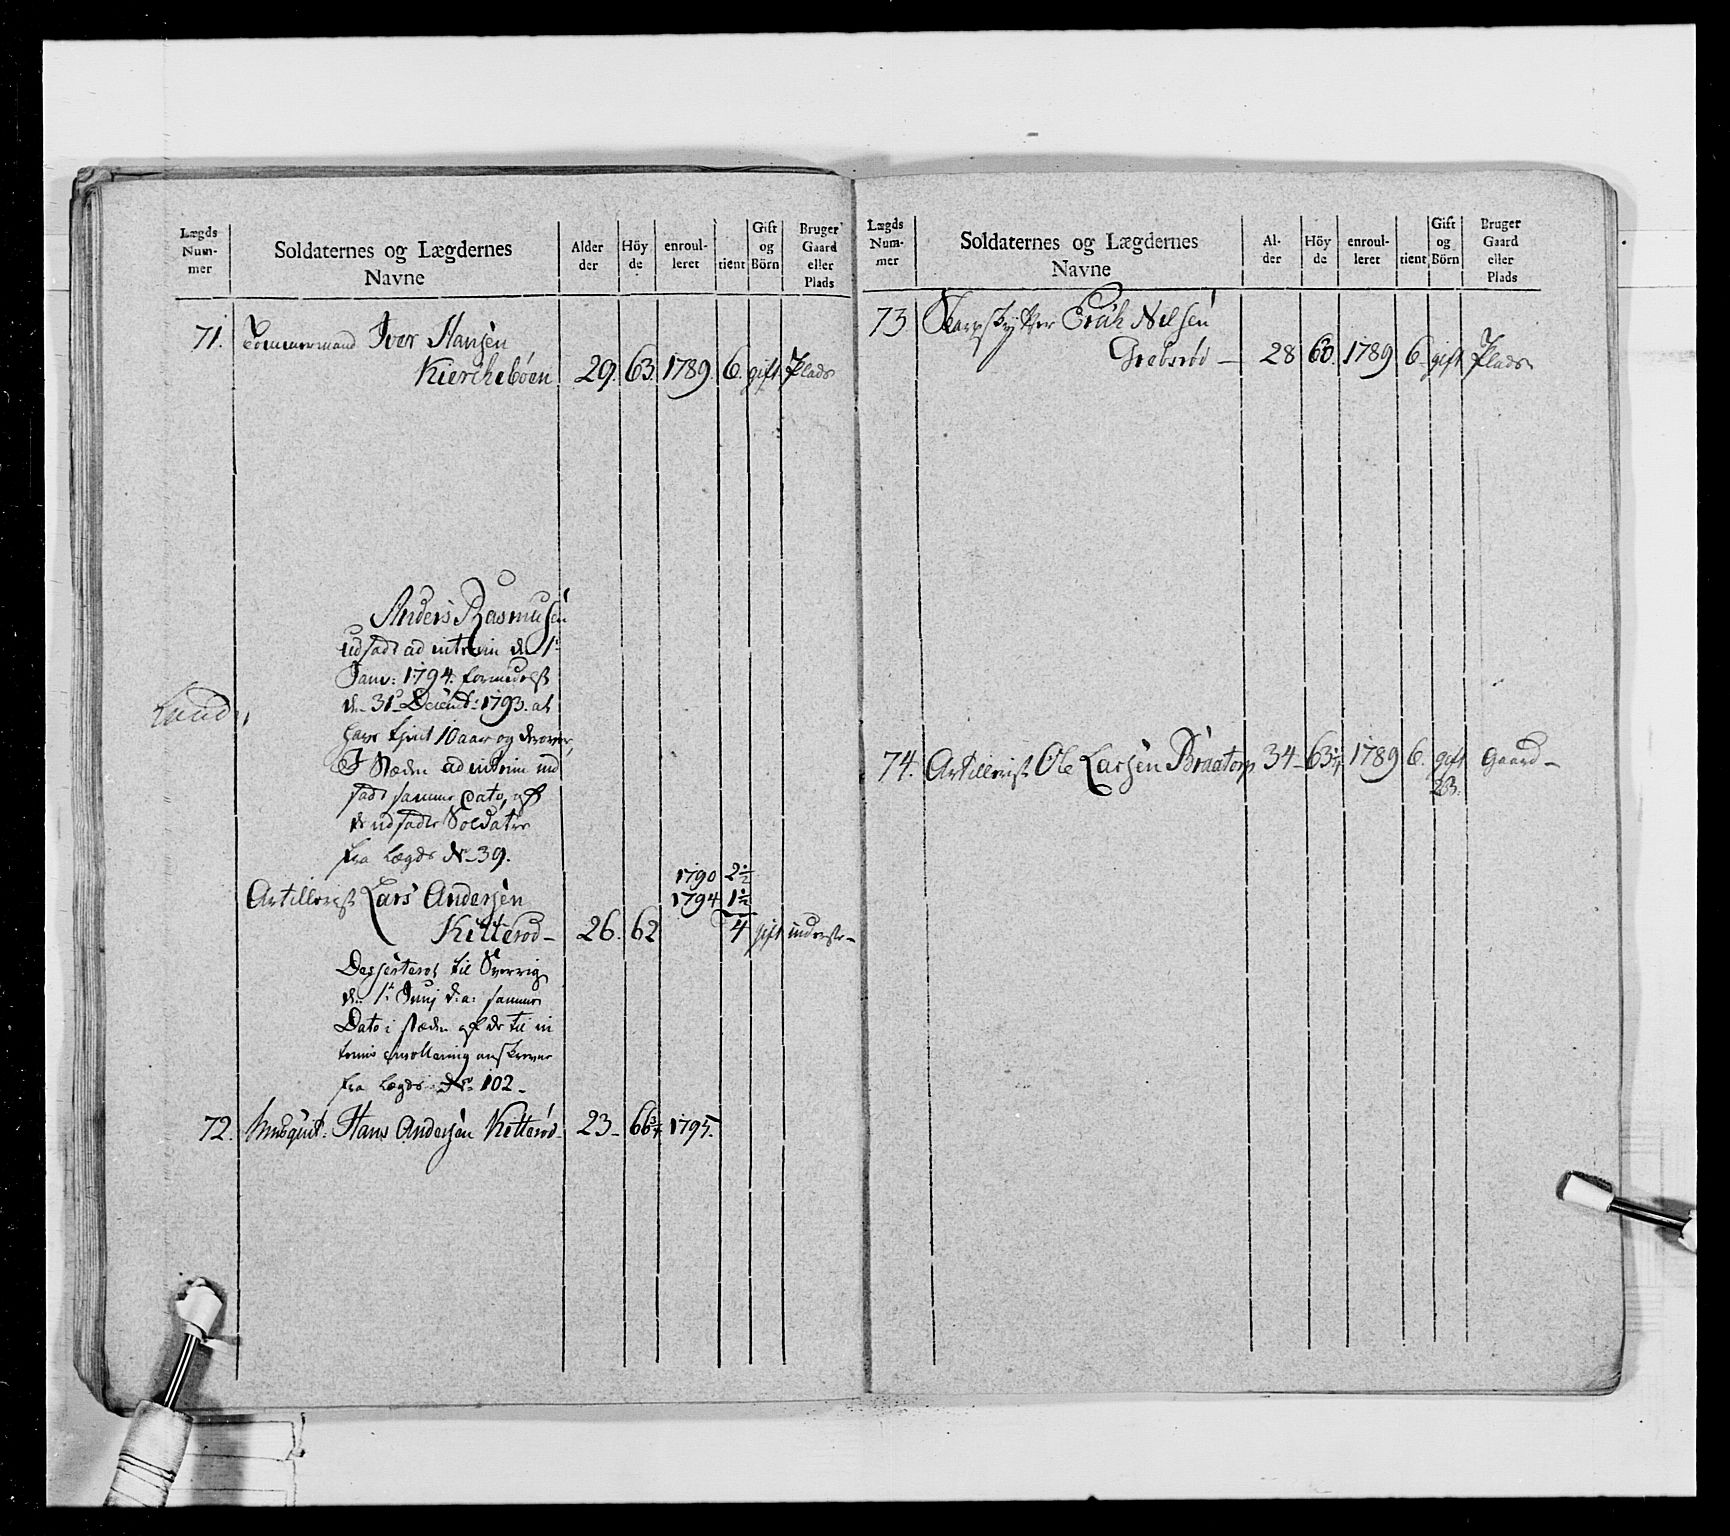 Lægds Num- mer
Soldaternes og Lægdernes Navne
Alder der
Höy de
enroul- leret
tient
Gift og Börn
Bruger Gaard eller Plads
71. Tömmermand Iver Hansen
Kierckebøen 29. 63. 1789. 6. gift Plads
Anders Rasmusen
udsadt ad interim den 1te
Janv: 1794. formedelst
den 31te Decembr: 1793. at
have tient 10 aar og derover,
I Stæden ad interim ind
sadt samme Dato, af
de udsadte Soldater
fra Lægds No 39.
Lund
1790 2½
1794 1½
Artillerist Lars Andersen
Kitterød- 26. 62 4 gift inderste-
Desserteret til Sverrig
den 1te Junj d: a: samme
Dato i stæden af de til in
terims enrollering anskrevne
fra Lægds No 102-
72. Musquet: Hans Andersen Kitterød- 23- 66¾ 1795.
Lægds Num- mer
Soldaternes og Lægdernes Navne
Al- der
Höy de
enroul- leret
tient
Gift og Börn
Bruger Gaard eller Plads
73 Skarpskytter Erich Nilsen
Grebsrød- 28 60. 1789 6. gift Plads
74. Artillerist Ole Larsen Braatorp 34- 63¼ 1789 6. gift Gaard-
2B.